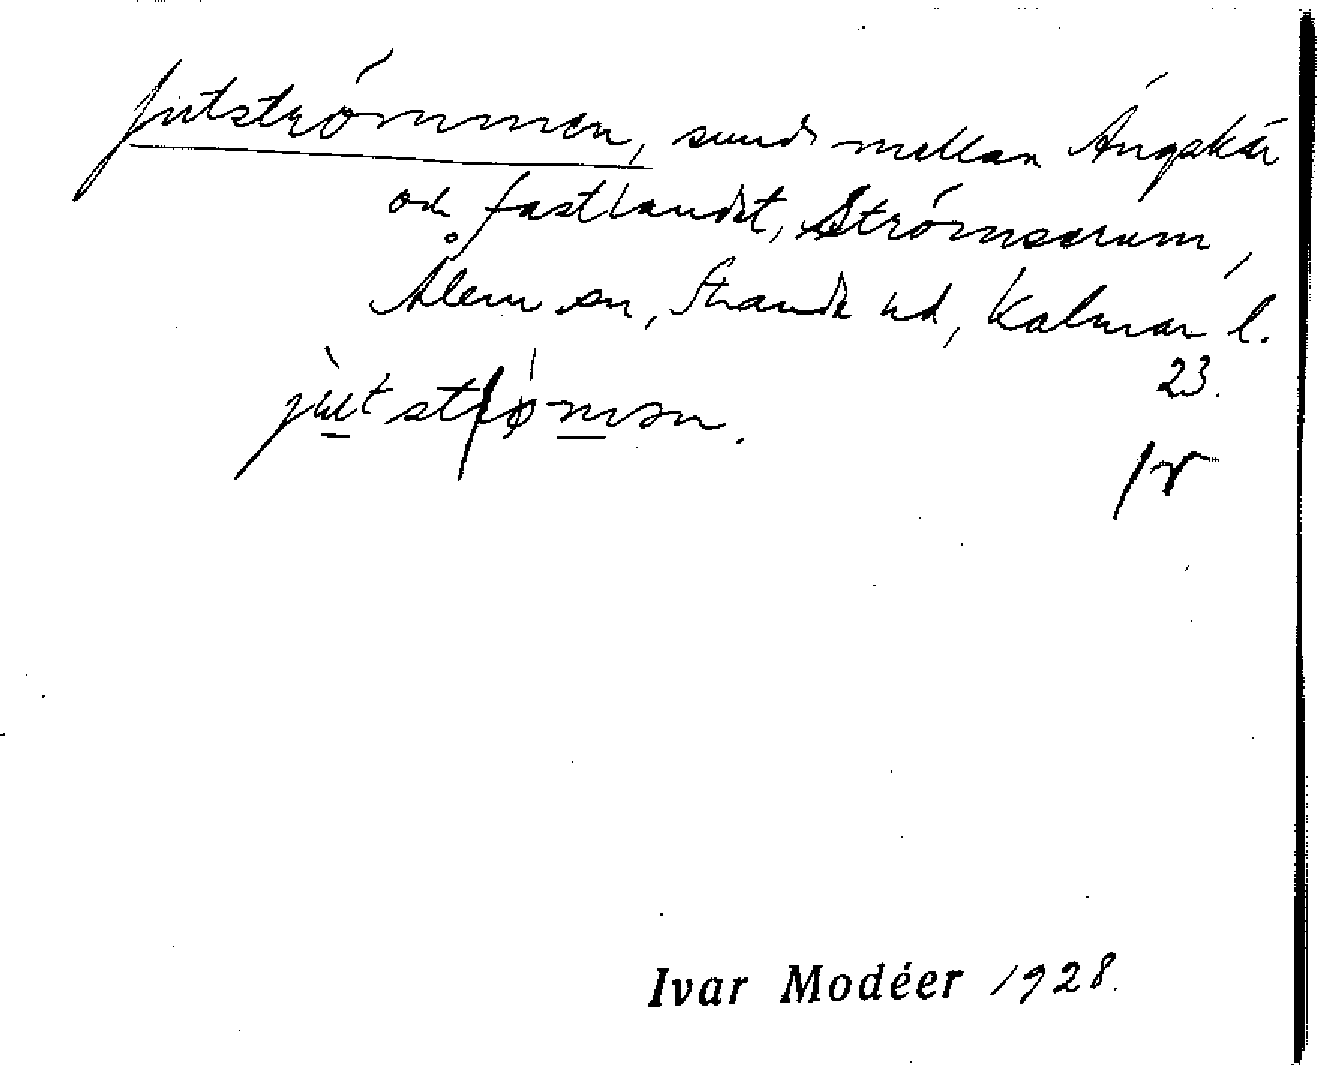 Jutströmmen, sund mellan Ängskär
och fastlandet, Strömserum,
Ålem sn, Stranda hd, Kalmar l.
23.
jùtstrǿmən.
Ivar Modéer 1928.